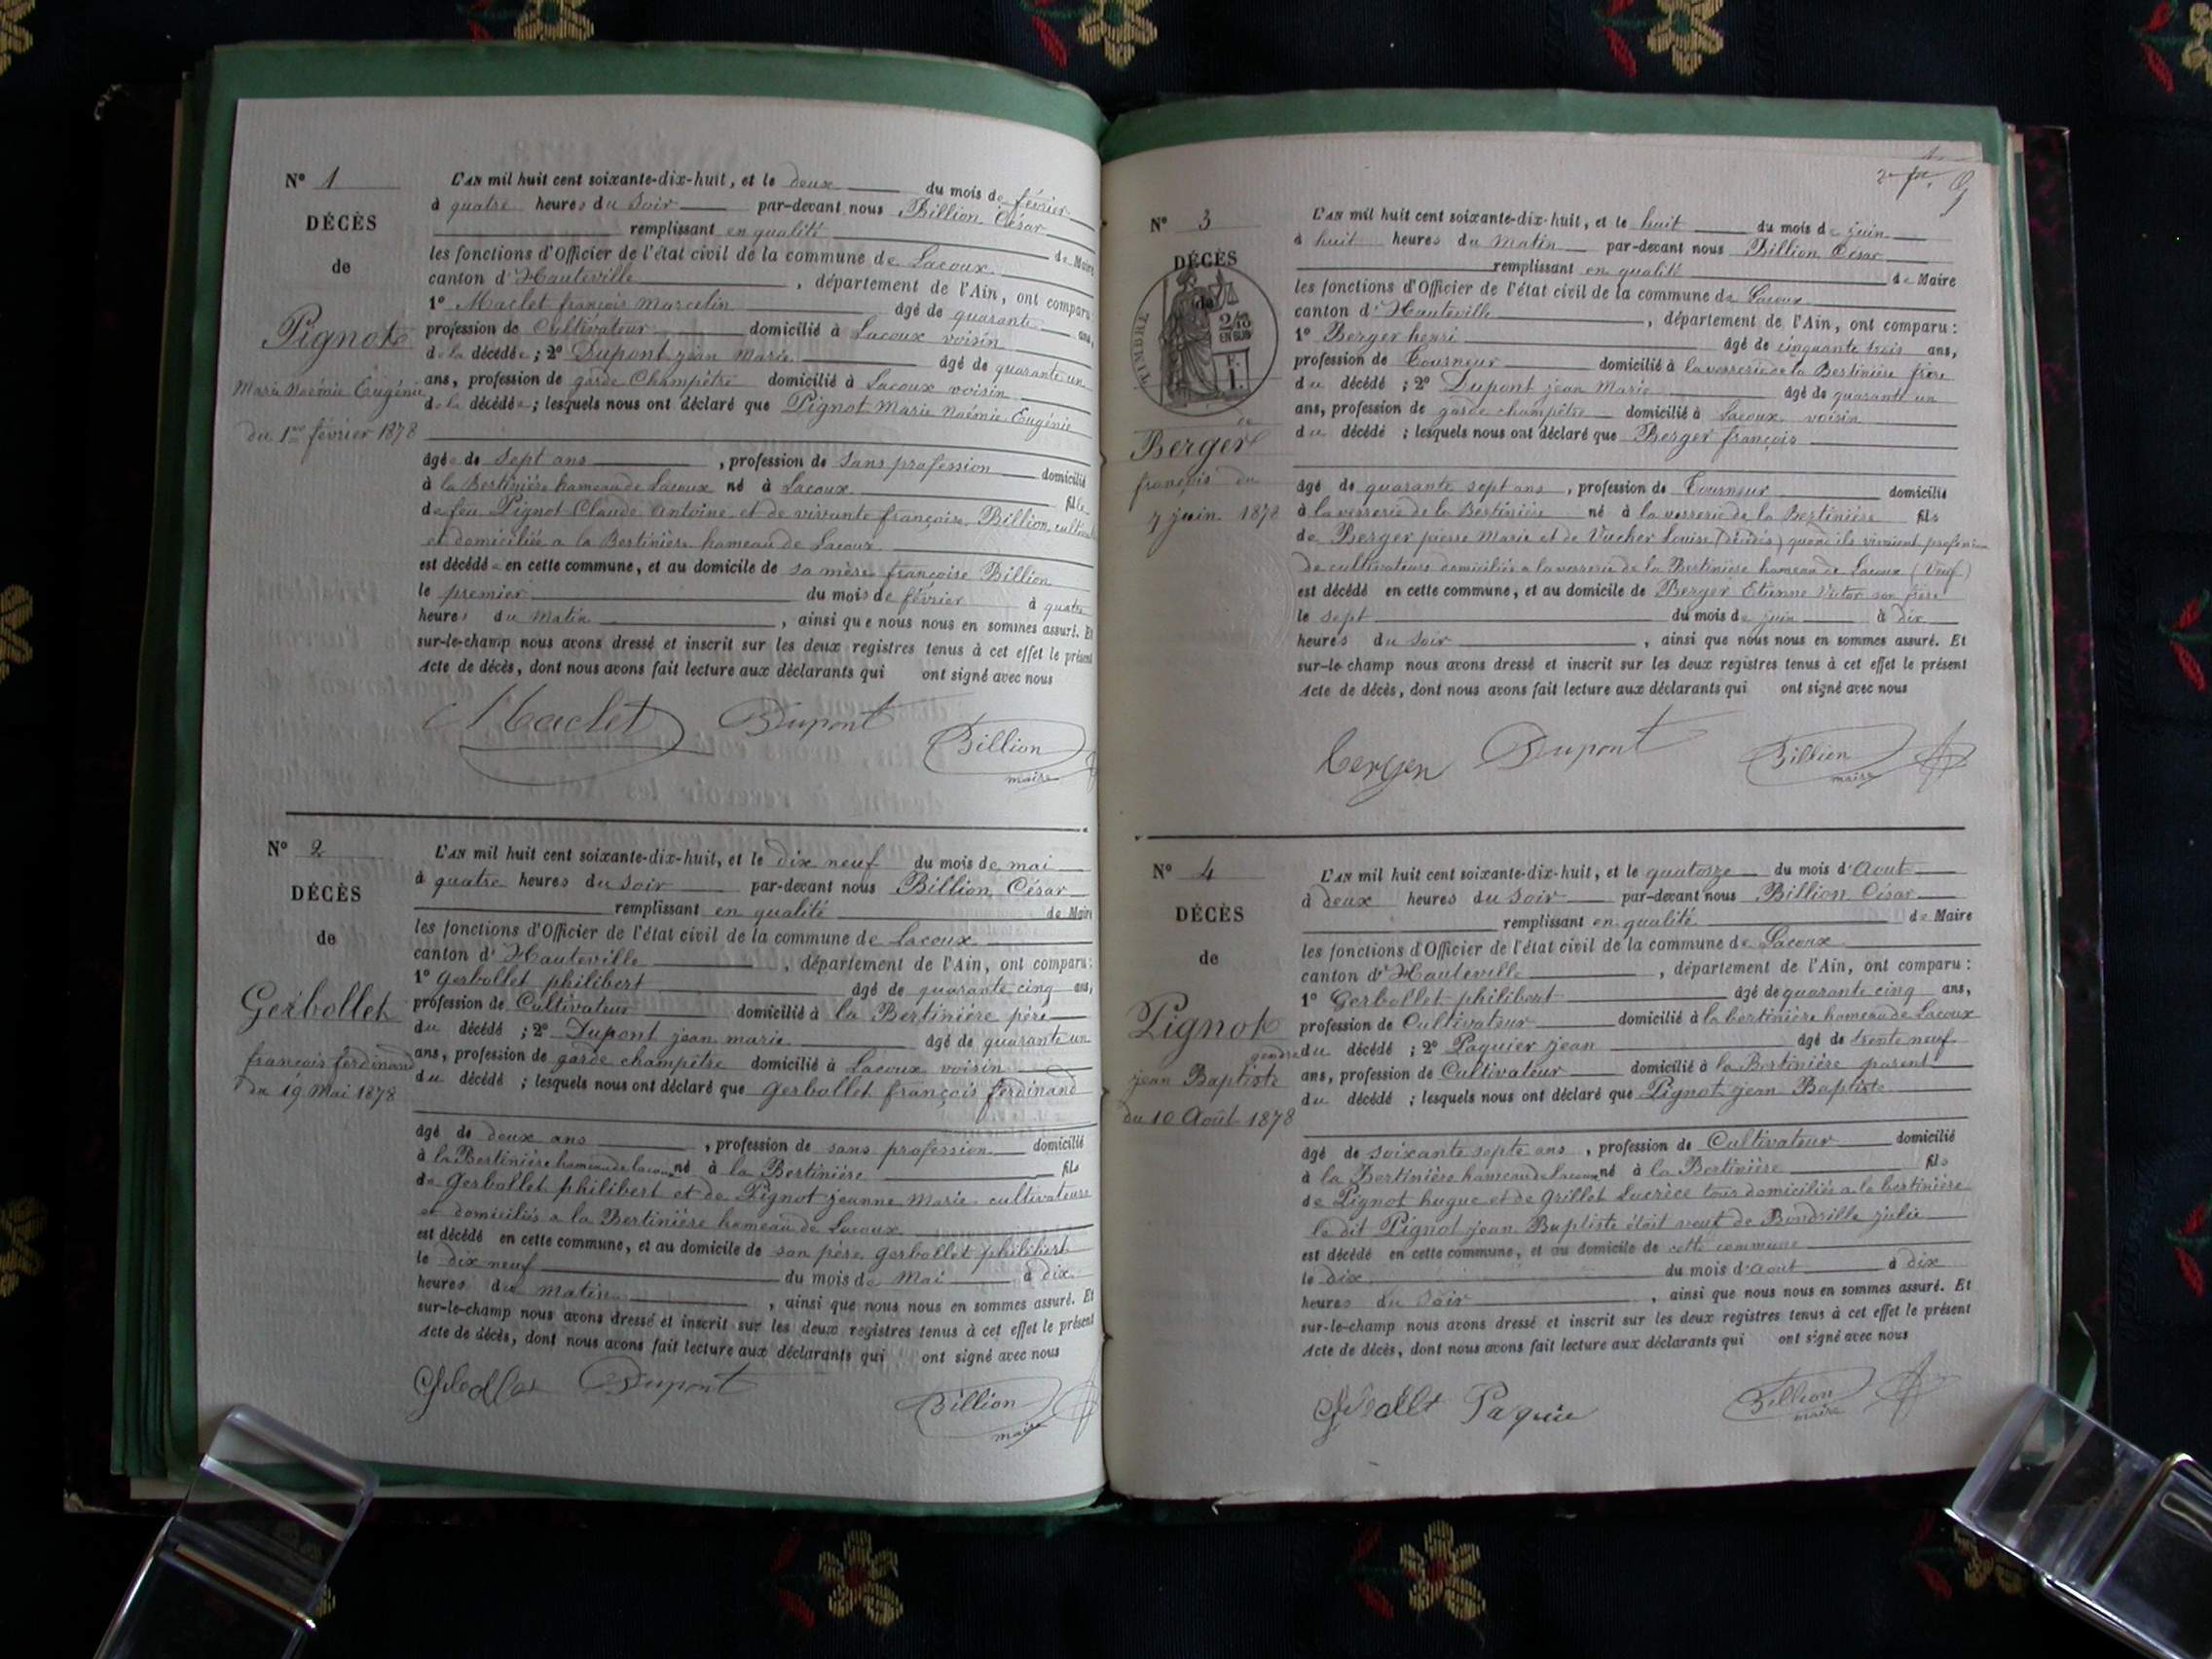 N° 1
DÉCÈS
de
Pignot
Marie Noémie Eugénie
du 1er février 1878
L'AN mil huit cent soixante-dix-huit, et le deux du mois de février
à quatre heures du Soir par-devant nous Billion César
remplissant en qualité de Maire
les fonctions d'Officier de l'état civil de la commune de Lacoux
canton d'Hauteville, département de l'Ain, ont comparu
1° Maclet françois Marcelin âgé de quarante ans,
profession de Cultivateur domicilié à Lacoux voisin
de la décédée; 2° Dupont jean Marie âgé de quarante un
ans, profession de garde Champêtre domicilié à Lacoux voisin
de la décédée; lesquels nous ont déclaré que Pignot Marie Noémie Eugénie
âgée de Sept ans, profession de Sans profession domicilié
à la Bertinière hameau de Lacoux né à Lacoux fille
de feu Pignot Claude Antoine et de vivante françoise Billion
et domiciliée a la Bertinière hameau de Lacoux
est décédée en cette commune, et au domicile de sa mère françoise Billion
le premier du mois de février à quatre
heures du Matin, ainsi que nous nous en sommes assuré. Et
sur-le-champ nous avons dressé et inscrit sur les deux registres tenus à cet effet le présent
Acte de décès, dont nous avons fait lecture aux déclarants qui ont signé avec nous
Maclet Dupont Billion
maire
N° 2
DÉCÈS
de
Gerbollet
françois ferdinand
du 19 Mai 1878
L'AN mil huit cent soixante-dix-huit, et le dix neuf du mois de mai
à quatre heures du Soir par-devant nous Billion César
remplissant en qualité de Maire
les fonctions d'Officier de l'état civil de la commune de Lacoux
canton d'Hauteville, département de l'Ain, ont comparu:
1° Gerbollet philibert âgé de quarante cinq ans,
profession de Cultivateur domicilié à la Bertinière père
du décédé; 2° Dupont jean marie âgé de quarante un
ans, profession de garde champêtre domicilié à Lacoux voisin
du décédé; lesquels nous ont déclaré que Gerbollet françois ferdinand
âgé de deux ans, profession de sans profession domicilié
à la Bertinière hameau de Lacoux né à la Bertinière fils
de Gerbollet philibert et de Pignot jeanne Marie cultivateurs
et domiciliés a la Bertinière hameau de Lacoux
est décédé en cette commune, et au domicile de son père Gerbollet philibert
le dix neuf du mois de Mai à dix
heures du matin, ainsi que nous nous en sommes assuré. Et
sur-le-champ nous avons dressé et inscrit sur les deux registres tenus à cet effet le présent
Acte de décès, dont nous avons fait lecture aux déclarants qui ont signé avec nous
Dupont Billion
maire
N° 3
DÉCÈS
de
TIMBRE
2/10
EN SUS
F.
1.
de
Berger
françois du
7 juin 1878
L'AN mil huit cent soixante-dix-huit, et le huit du mois de juin
à huit heures du Matin par-devant nous Billion César
remplissant en qualité de Maire
les fonctions d'Officier de l'état civil de la commune de Lacoux
canton d'Hauteville, département de l'Ain, ont comparu:
1° Berger henri âgé de cinquante trois ans,
profession de Tourneur domicilié à la verrerie de la Bertinière frère
du décédé; 2° Dupont jean Marie âgé de quarante un
ans, profession de garde champêtre domicilié à Lacoux voisin
du décédé; lesquels nous ont déclaré que Berger françois
âgé de quarante sept ans, profession de Tourneur domicilié
à la verrerie de la Bertinière né à la verrerie de la Bertinière fils
de Berger pierre Marie et de Vucher Louise (décédés) quand ils vivaient profession
de cultivateurs domiciliés a la verrerie de la Bertinière hameau de Lacoux (Veuf)
est décédé en cette commune, et au domicile de Berger Etienne Victor son frère
le sept du mois de juin à dix
heures du Soir, ainsi que nous nous en sommes assuré. Et
sur-le-champ nous avons dressé et inscrit sur les deux registres tenus à cet effet le présent
Acte de décès, dont nous avons fait lecture aux déclarants qui ont signé avec nous
berger Dupont Billion
maire
N° 4
DÉCÈS
de
Pignot
jean Baptiste
du 10 Août 1878
L'AN mil huit cent soixante-dix-huit, et le quatorze du mois d'Aout
à deux heures du Soir par-devant nous Billion César
remplissant en qualité de Maire
les fonctions d'Officier de l'état civil de la commune de Lacoux
canton d'Hauteville, département de l'Ain, ont comparu:
1° Gerbollet philibert âgé de quarante cinq ans,
profession de Cultivateur domicilié à la bertinière hameau de Lacoux
gendre du décédé; 2° Paquier jean âgé de trente neuf
ans, profession de Cultivateur domicilié à la Bertinière parent
du décédé; lesquels nous ont déclaré que Pignot jean Baptiste
âgé de soixante septe ans, profession de Cultivateur domicilié
à la Bertinière hameau de Lacoux né à la Bertinière fils
de Pignot hugue et de Grillet Lucrèce tous domiciliés a la bertinière
le dit Pignot jean Baptiste était veuf de Bondrille julie
est décédé en cette commune, et au domicile de cette commune
le dix du mois d'août à dix
heures du Soir, ainsi que nous nous en sommes assuré. Et
sur-le-champ nous avons dressé et inscrit sur les deux registres tenus à cet effet le présent
Acte de décès, dont nous avons fait lecture aux déclarants qui ont signé avec nous
Paquie Billion
maire